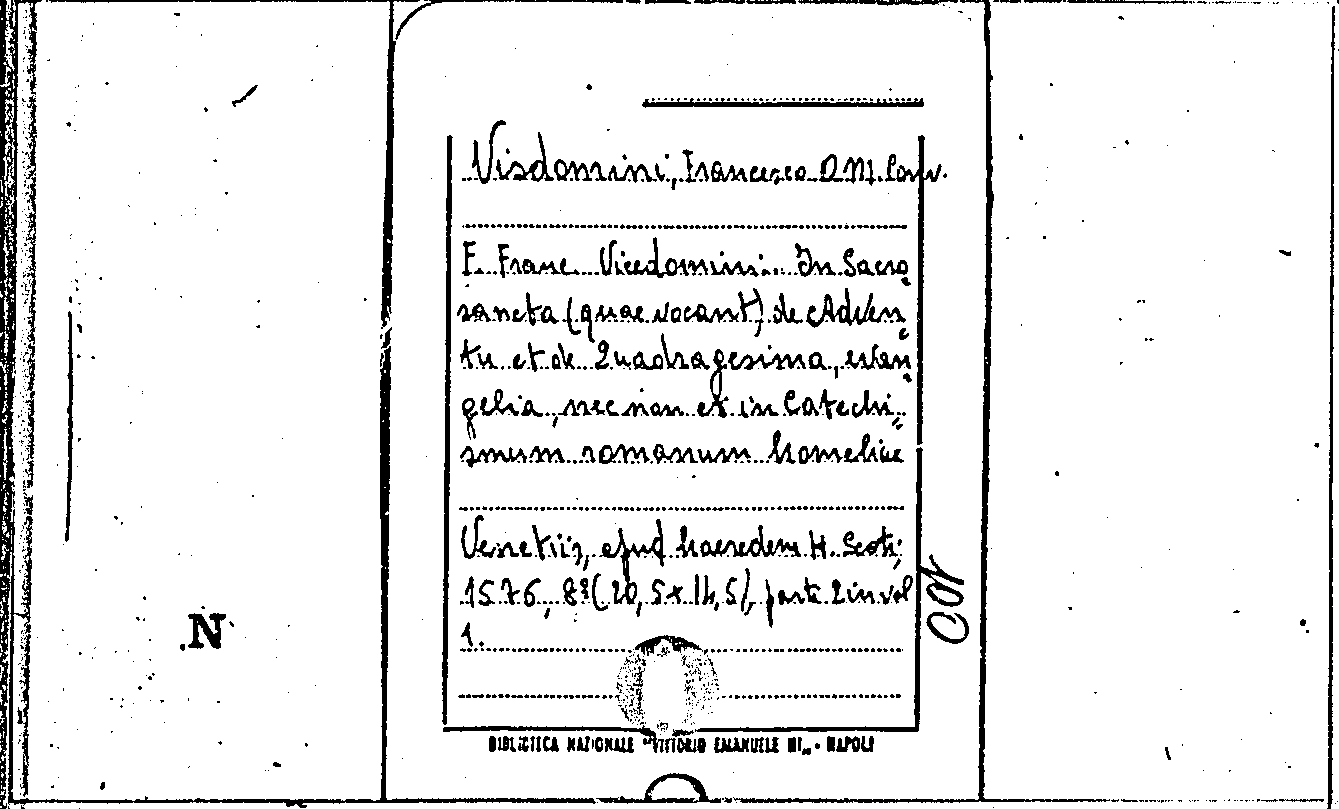 Visdomini, Francesco O.M. Conv.
F. Franc Vicedomini. In Sacro
sancta (quae vocant) de Adven
tu et de Quadragesima, evan
gelia, nec non et in Catechi
smum romanum homeliae
Venetiis, apud haeredem H. Scoti,
1576, 8º (20,5x14,5), parte 2 in vol
1.
COR
N
BIBLIOTECA NAZIONALE "VITTORIO EMANUELE III„ - NAPOLI